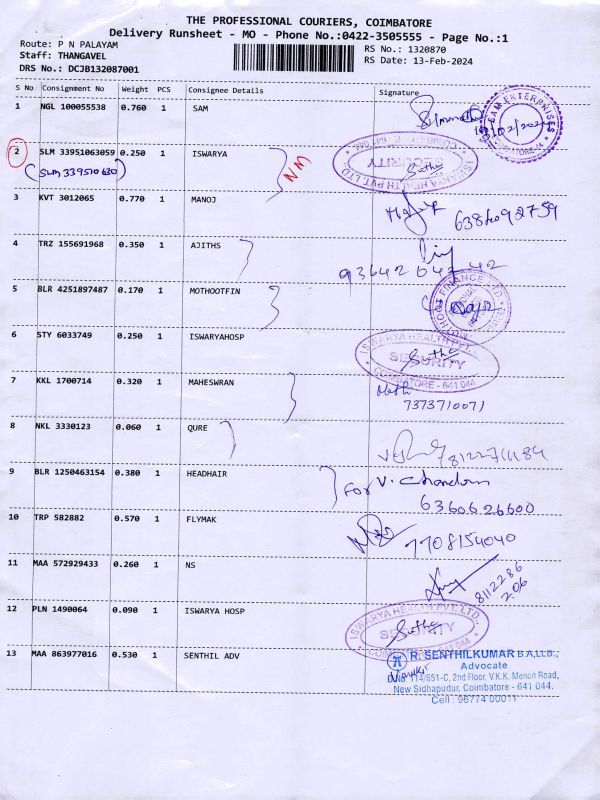 THE PROFESSIONAL COURIERS, COIMBATORE
Delivery Runsheet - MO - Phone No.:0422-3505555 - Page No.:1
Route: P N PALAYAM
Staff: THANGAVEL
DRS No.: DCJB132087001
RS No.: 1320870
RS Date: 13-Feb-2024
S No Consignment No Weight PCS Consignee Details Signature
1 NGL 100055538 0.760 1 SAM
2 SLM 33951063059 0.250 1 ISWARYA NM
(SLM 339510630)
ISWARYA HEALTH PVT. LTD.
SECURITY
Sutha
3 KVT 3012065 0.770 1 MANOJ
6384092759
4 TRZ 155691968 0.350 1 AJITHS
5 BLR 4251897487 0.170 1 MOTHOOTFIN
6 STY 6033749 0.250 1 ISWARYAHOSP
ISWARYA HEALTH PVT.
SECURITY
Sutha
COIMBATORE - 641 044
7 KKL 1700714 0.320 1 MAHESWRAN
7373710071
8 NKL 3330123 0.060 1 QURE
9 BLR 1250463154 0.380 1 HEADHAIR
For V. Chandran
6360626600
10 TRP 582882 0.570 1 FLYMAK
7708154040
11 MAA 572929433 0.260 1 NS
8112286
206
12 PLN 1490064 0.090 1 ISWARYA HOSP
ISWARYA HEALTH PVT. LTD.
SECURITY
Sutha
13 MAA 863977016 0.530 1 SENTHIL ADV
R. SENTHILKUMAR B.A,LLB.,
Advocate
D.No. 114/651-C, 2nd Floor, V.K.K. Menon Road,
New Sidhapudur, Coimbatore - 641 044.
Cell : 96774 00011